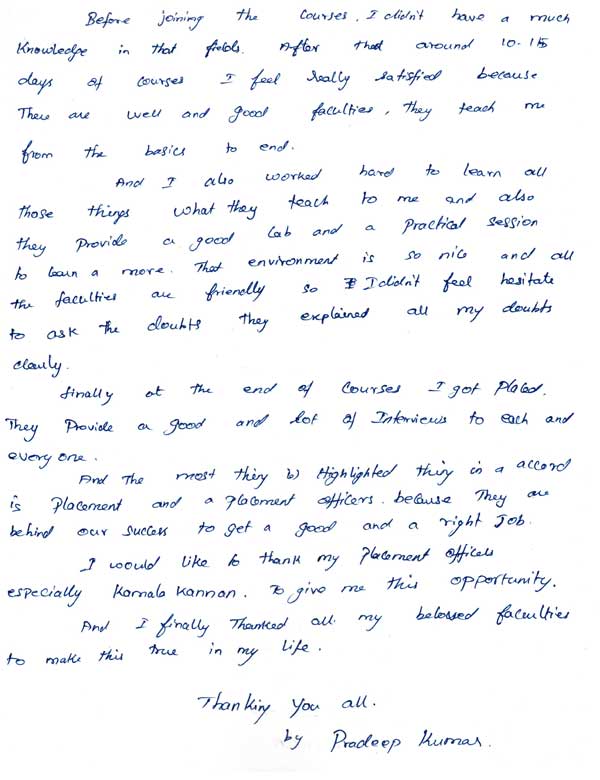 Before joining the courses, I didn't have a much
Knowledge in that fields. After that around 10-15
days of courses I feel really satisfied because
There are well and good faculties, they teach me
from the basics to end.
And I also worked hard to learn all
those things what they teach to me and also
they Provide a good Lab and a Practical session
to learn a more. That environment is so nice and all
the faculties are friendly so I didn't feel hesitate
to ask the doubts they explained all my doubts
clearly.
finally at the end of Courses I got Placed.
They Provide a good and lot of Interviews to each and
every one.
And The most thing is Highlighted thing in a accord
is Placement and a Placement officers. because They are
behind our success to get a good and a right Job.
I would like to thank my Placement officers
especially Kamala Kannan. To give me this opportunity.
And I finally Thanked all my belossed faculties
to make this true in my life.
Thanking You all.
by Pradeep Kumar.